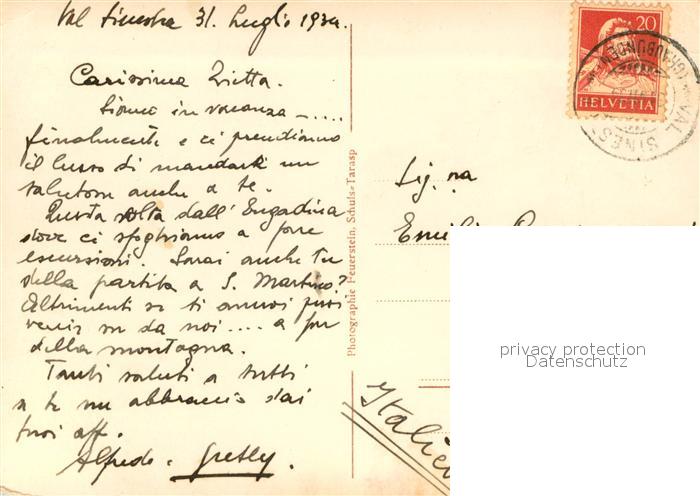 Val Sinestra 31. Luglio 1934.
Carissima Zietta.
Siamo in vacanza - ....
finalmente e ci prendiamo
il lusso di mandarti un
salutone anche a te.
Questa volta dall' Engadina
dove ci sfoghiamo a fare
escursioni. Sarai anche tu
della partita a S. Martino?
Altrimenti se ti annoi puoi
venir su da noi .... a far
della montagna.
Tanti saluti a tutti
a te un abbraccio dai
tuoi aff.
Alfredo - Gretly.
Photographie Feuerstein, Schuls-Tarasp
20
HELVETIA
VAL SINES
(GRAUBÜNDEN)
Sig.na
privacy protection
Datenschutz